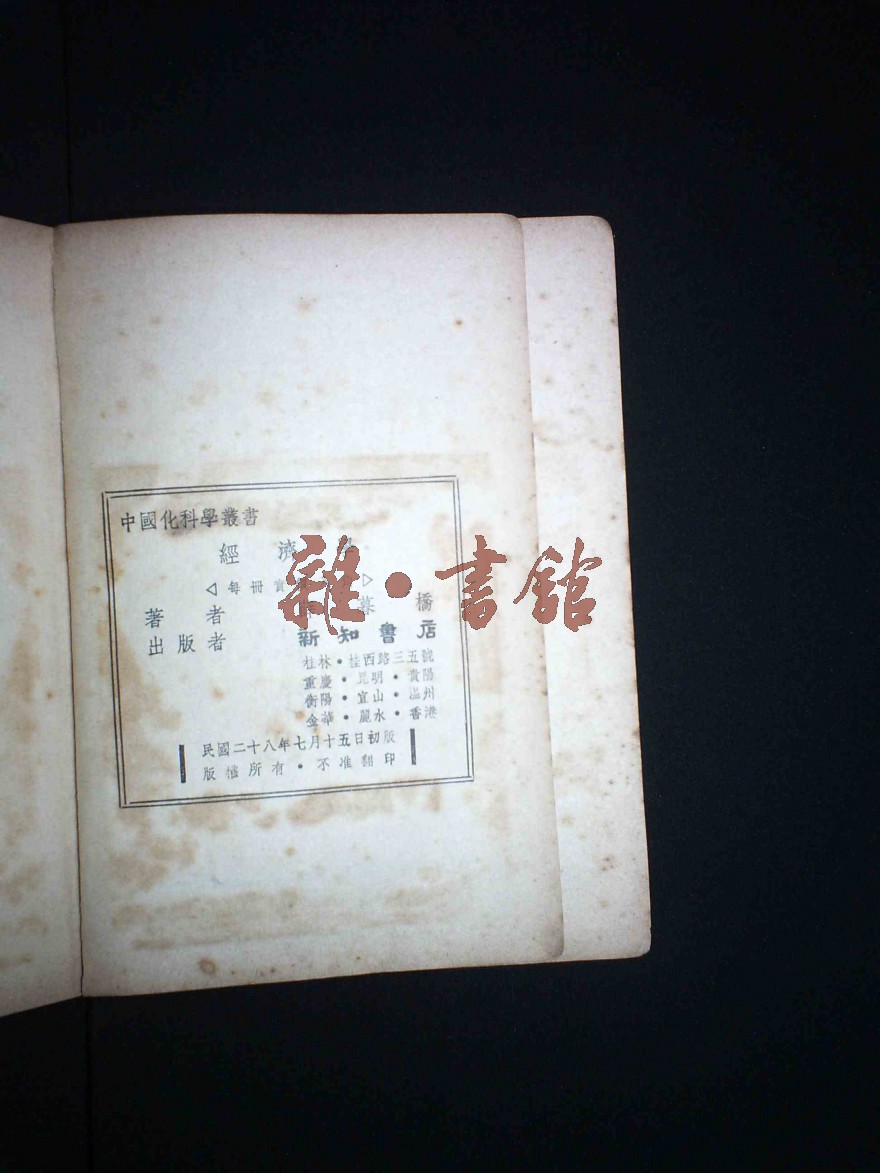 中國化科學叢書
經濟
◁每冊實 ▷
著者 橋
出版者 新知書店
桂林·桂西路三五號
重慶·昆明·貴陽
衡陽·宜山·溫州
金華·麗水·香港
民國二十八年七月十五日初版
版權所有·不准翻印
雜·書館